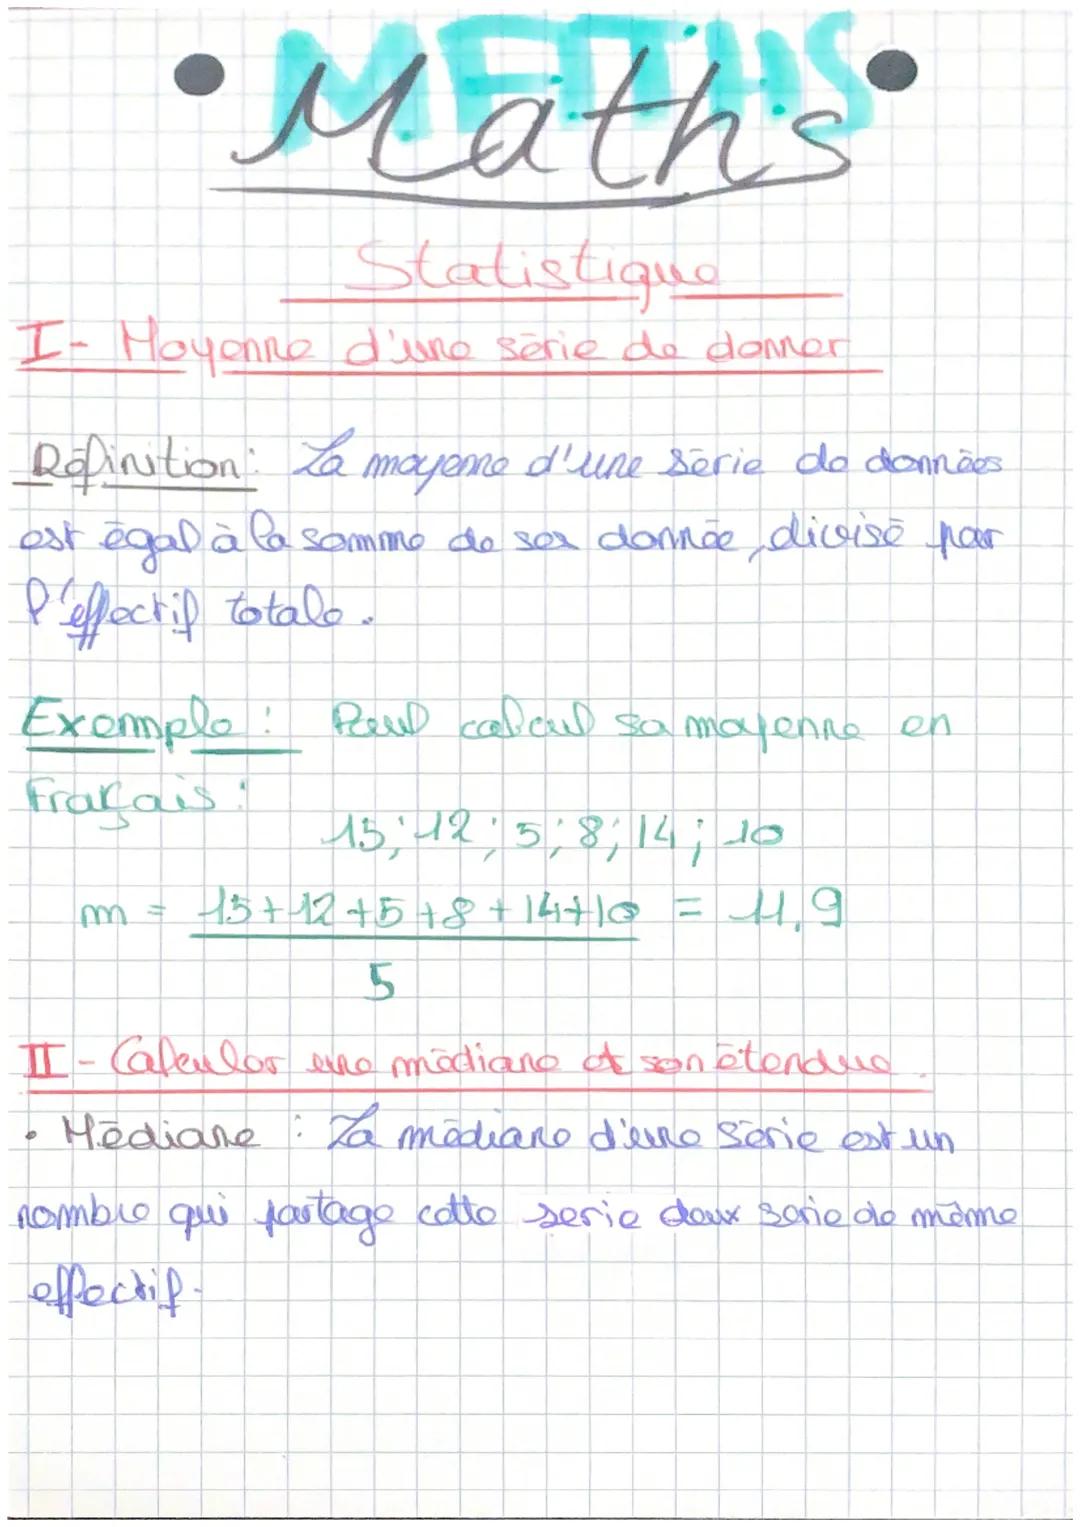 MATHS
Maths
Statistique
I- Moyenne d'une série de donner
Définition: La moyenne d'une série de données
est égal à la somme de ses donnée, divisé par
l'effectif totale.
Exemple: Paul calcul sa moyenne en
Fraçais:
15; 12; 5; 8; 14; 10
m = 15+12+5+8+14+10 = 11,9
5
II- Calculer une médiane et son étendue.
• Médiane : La médiane d'une série est un
nombre qui partage cette serie deux serie de même
effectif.